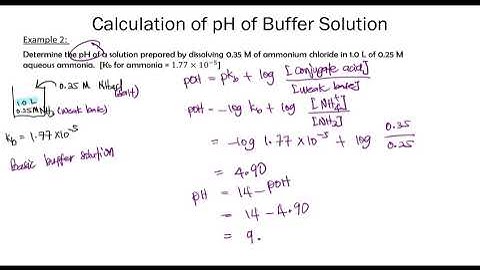 Calculation of pH of Buffer Solution
Example 2:
Determine the pH of a solution prepared by dissolving 0.35 M of ammonium chloride in 1.0 L of 0.25 M
aqueous ammonia. [Kb for ammonia = 1.77 × 10⁻⁵]
0.35 M NH4Cl
(salt)
1.0 L
0.25M NH3 (weak base)
Kb = 1.77 x10⁻⁵
Basic buffer solution
pOH = pKb + log [conjugate acid] / [weak base]
pOH = -log Kb + log [NH4⁺] / [NH3]
= -log 1.77 x10⁻⁵ + log 0.35 / 0.25
= 4.90
pH = 14 - pOH
= 14 - 4.90
= 9.